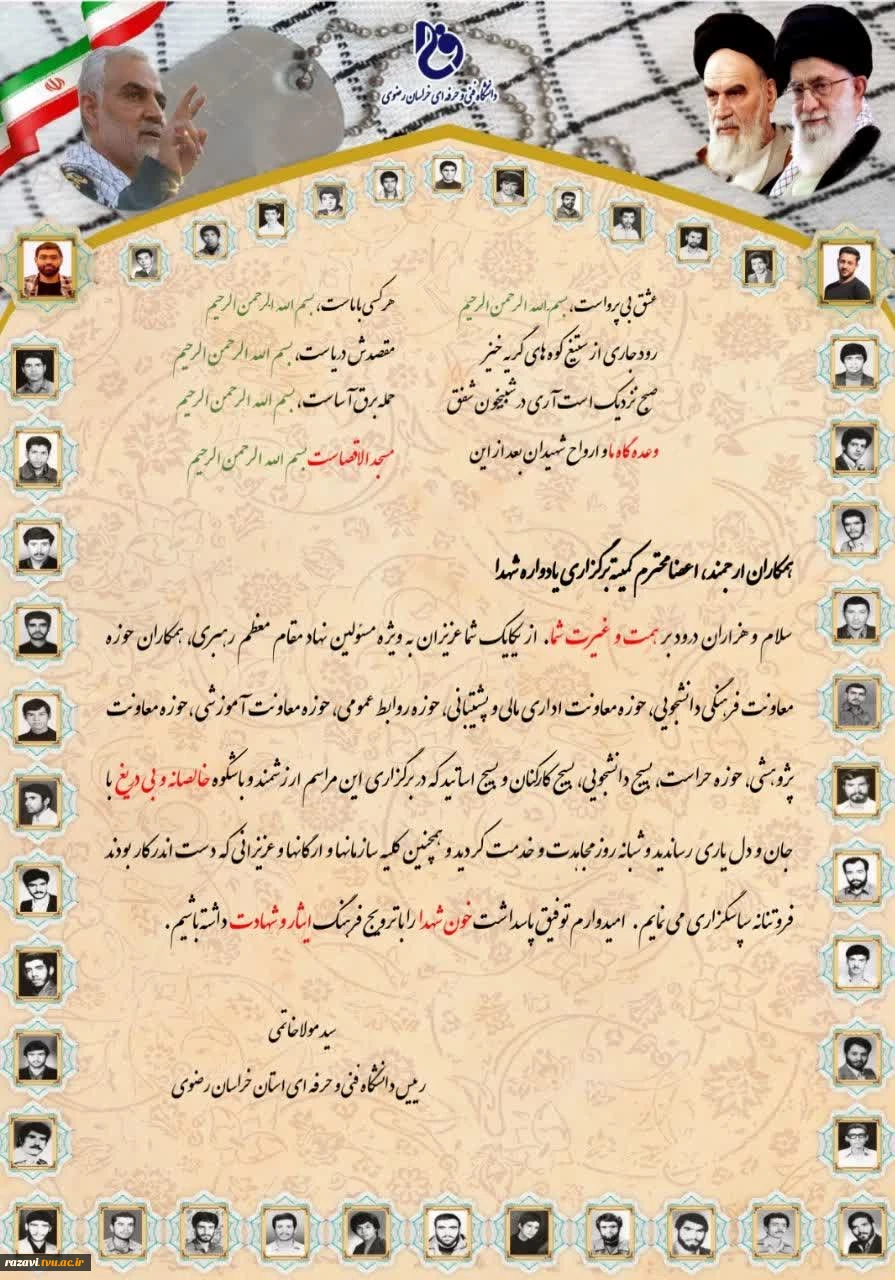 دانشگاه فنی و حرفه ای خراسان رضوی
عشق بی پرواست، بسم الله الرحمن الرحیم هر کسی با ماست، بسم الله الرحمن الرحیم
رود جاری از ستیغ کوه های گریه خیز مقصدش دریاست، بسم الله الرحمن الرحیم
صبح نزدیک است آری در شبیخون شفق حمله برق آساست، بسم الله الرحمن الرحیم
وعده گاه ما و ارواح شهیدان بعد از این مسجد الاقصاست بسم الله الرحمن الرحیم
همکاران ارجمند، اعضا محترم کمیته برگزاری یادواره شهدا
سلام و هزاران درود بر همت و غیرت شما. از یکایک شما عزیزان به ویژه مسئولین نهاد مقام معظم رهبری، همکاران حوزه
معاونت فرهنگی دانشجویی، حوزه معاونت اداری مالی و پشتیبانی، حوزه روابط عمومی، حوزه معاونت آموزشی، حوزه معاونت
پژوهشی، حوزه حراست، بسیج دانشجویی، بسیج کارکنان و بسیج اساتید که در برگزاری این مراسم ارزشمند و باشکوه خالصانه و بی دریغ با
جان و دل یاری رساندید و شبانه روز مجاهدت و خدمت کردید و همچنین کلیه سازمانها و ارگانها و عزیزانی که دست اندرکار بودند
فروتنانه سپاسگزاری می نمایم. امیدوارم توفیق پاسداشت خون شهدا را با ترویج فرهنگ ایثار و شهادت داشته باشیم.
سید مولا خاتمی
رییس دانشگاه فنی و حرفه ای استان خراسان رضوی
razavi.tvu.ac.ir